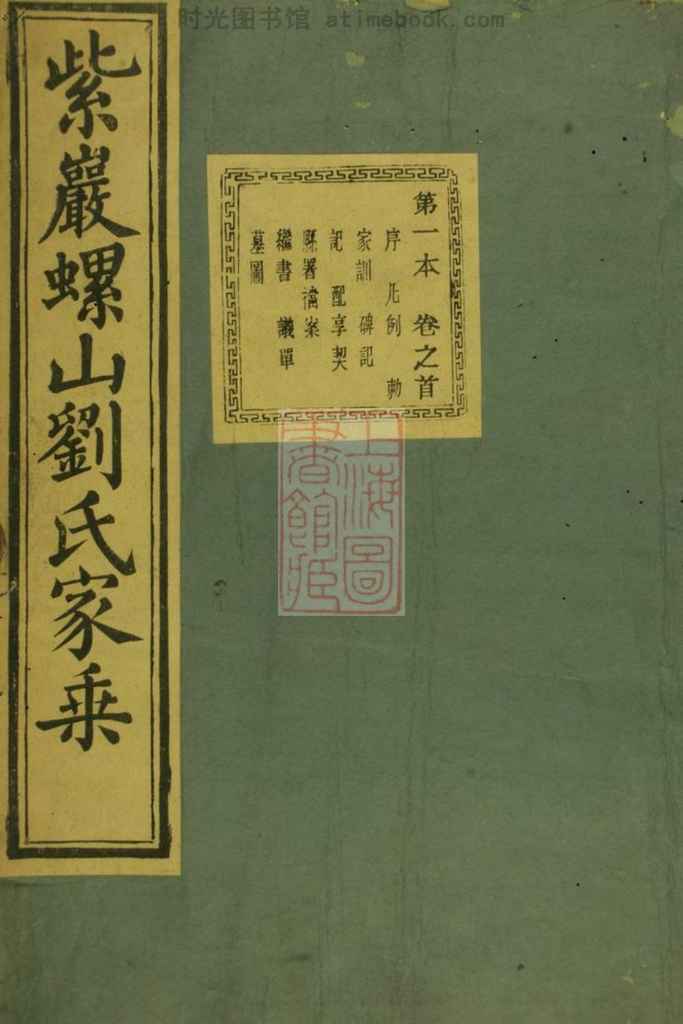 时光图书馆 atimebook.com
紫巖螺山劉氏家乗
第一本 卷之首
序 凡例 勅
家訓 碑記
記 配享契
縣署檔案
繼書 議單
墓圖
上海圖
書館